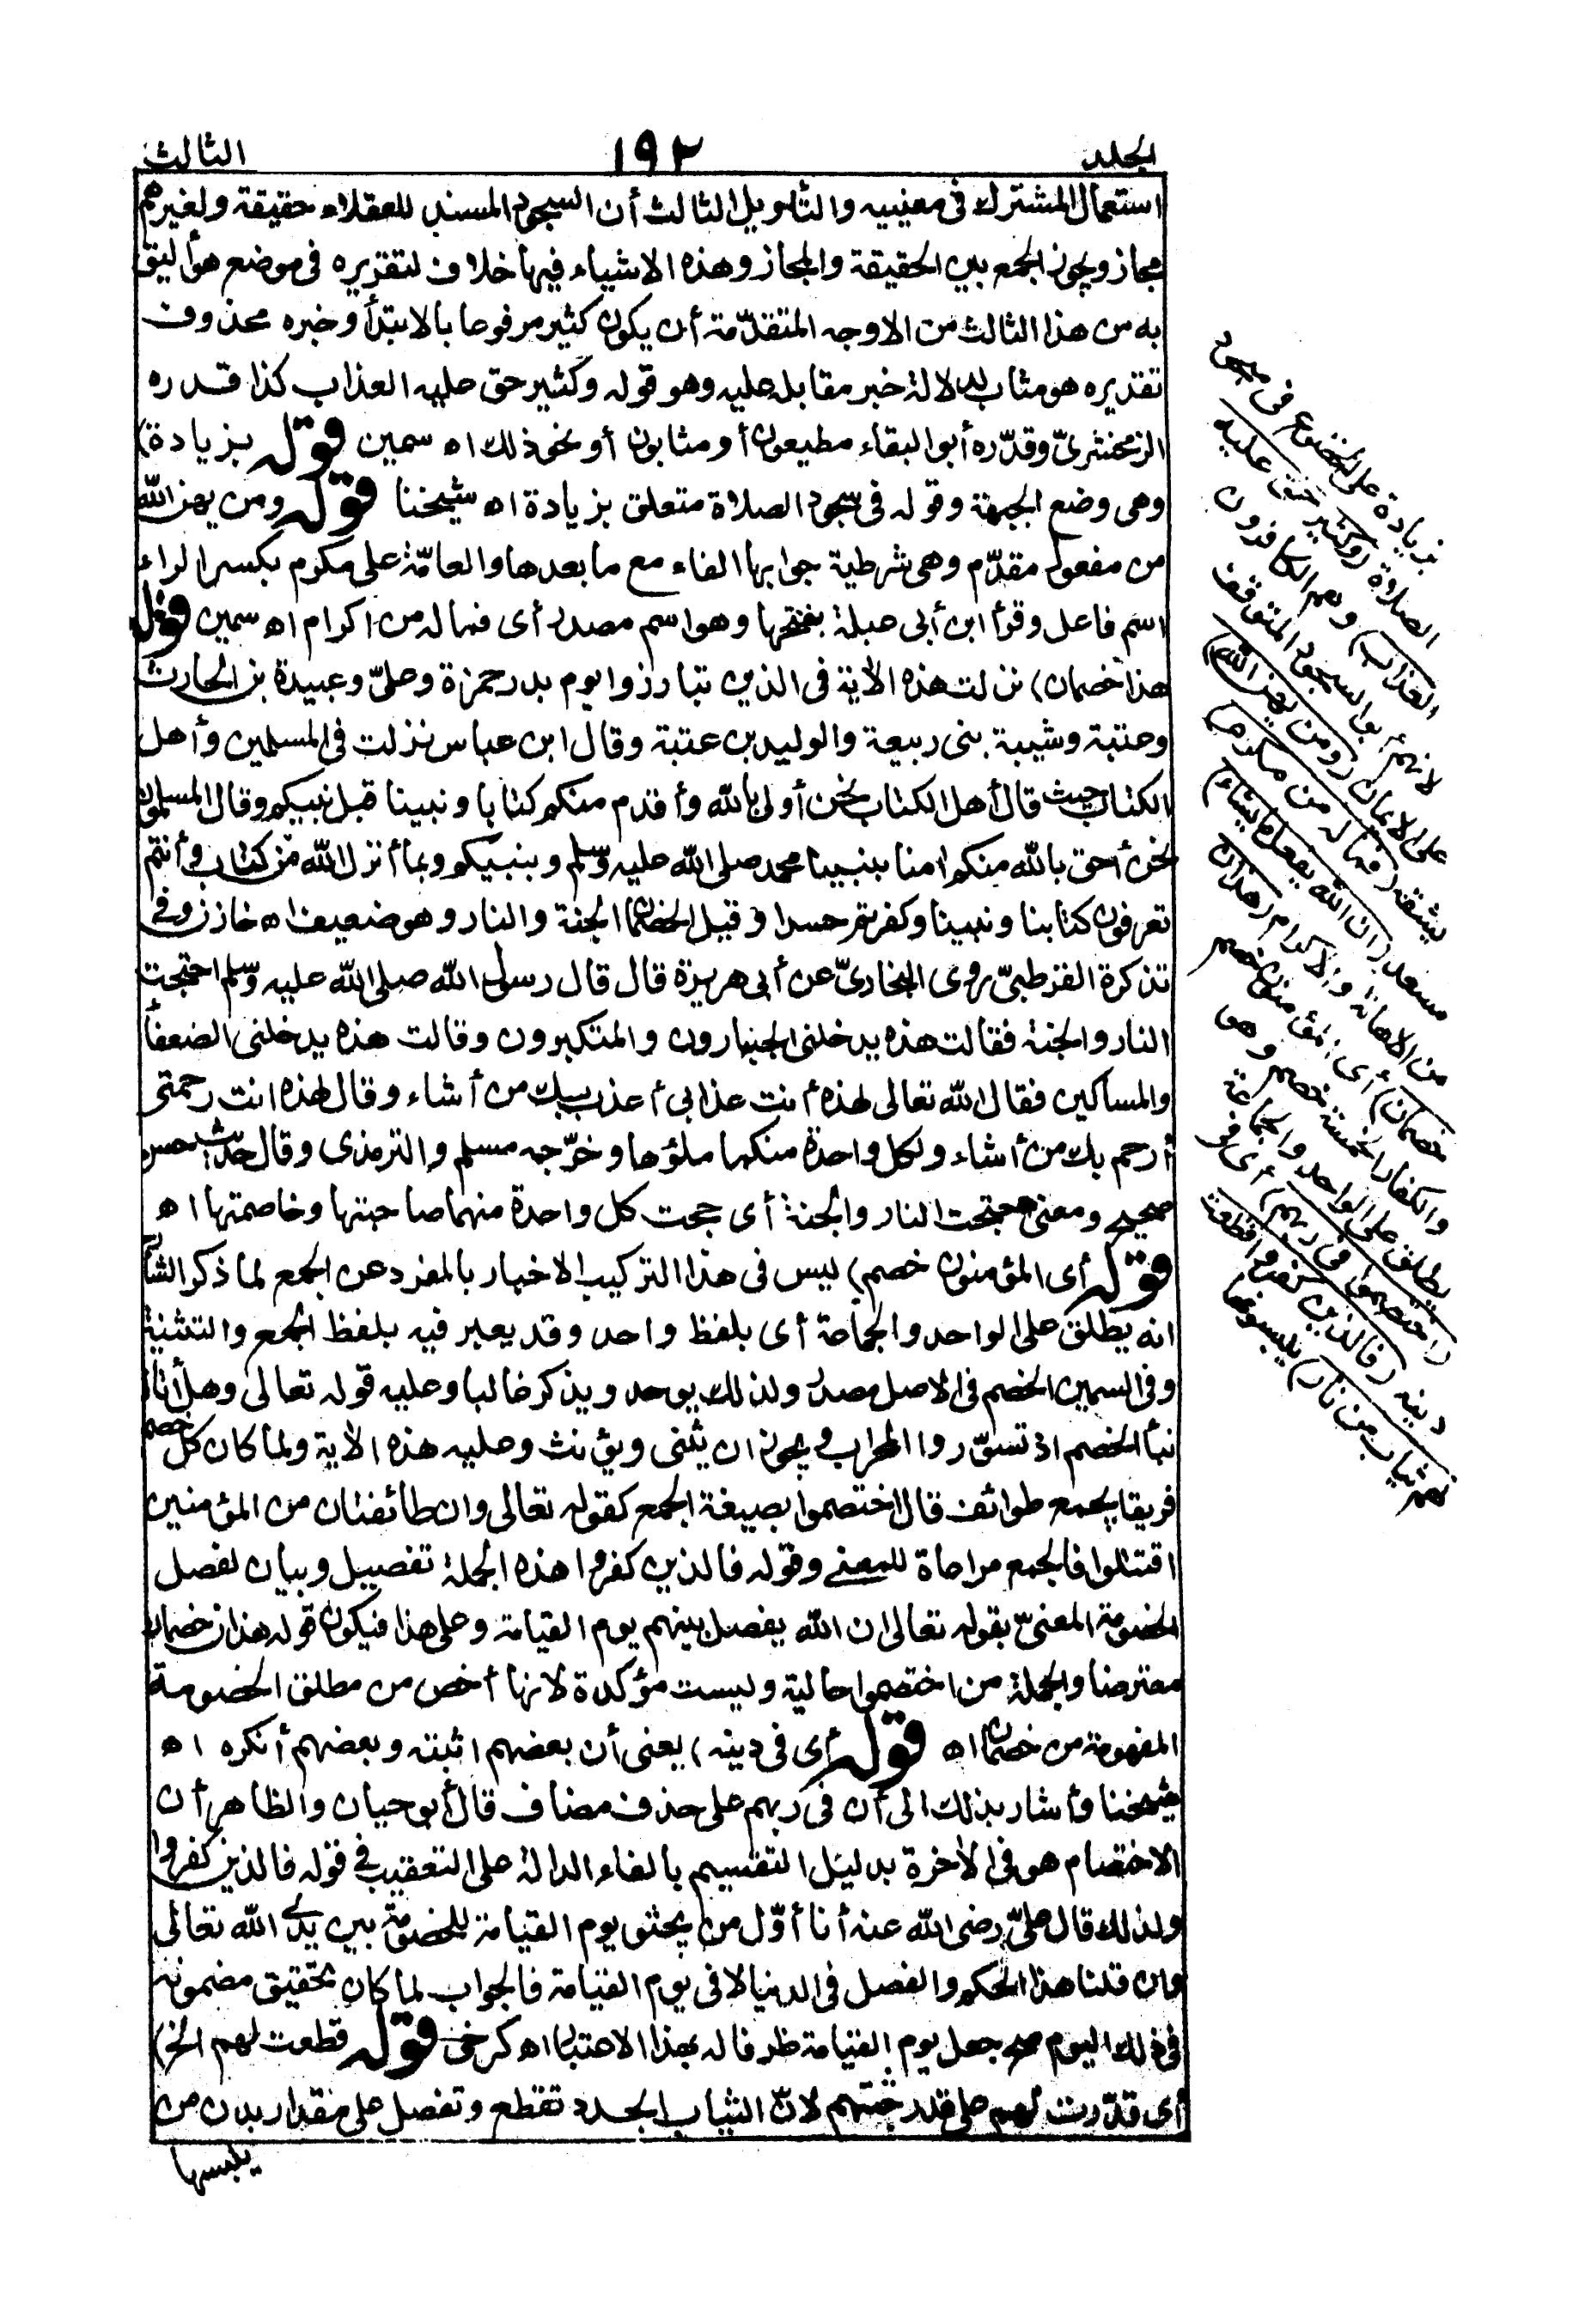 الجلد ١٩٢ الثالث
استعمال المشترك في معنييه والتأويل الثالث أن السجود المسند للعقلاء حقيقة ولغيرهم
مجاز ويجوز الجمع بين الحقيقة والمجاز وهذه الاشياء فيها خلاف لتقريره في موضع هو أليق
به من هذا الثالث من الاوجه المتقدّمة أن يكون كثير مرفوعا بالابتدأ وخبره محذوف
تقديره هو مثاب لدلالة خبر مقابله عليه وهو قوله وكثير حق عليه العذاب كذا قدره
الزمخشريّ وقدّره أبو البقاء مطيعون أو مثابون أو نحو ذلك اه سمين قوله بزيادة)
وهي وضع الجبهة وقوله في سجود الصلاة متعلق بزيادة اه شيخنا قوله ومن يهن الله
من مفعول مقدّم وهي شرطية جوابها الفاء مع ما بعدها والعامّة على مكرم بكسر الراء
اسم فاعل وقرأ ابن أبي عبلة بفتحها وهو اسم مصدر أي فماله من اكرام اه سمين قوله
هذا خصمان) نزلت هذه الآية في الذين تبارزوا يوم بدر حمزة وعليّ وعبيدة بن الحارث
وعتبة وشيبة بني ربيعة والوليد بن عتبة وقال ابن عباس نزلت في المسلمين وأهل
الكتاب حيث قال أهل الكتاب نحن أولى بالله وأقدم منكم كتابا ونبينا قبل نبيكم وقال المسلمون
نحن أحق بالله منكم امنا بنبينا محمد صلى الله عليه وسلم وبنبيكم وبما أنزل الله من كتاب وأنتم
تعرفون كتابنا ونبينا وكفرتم حسدا وقيل الخصمان الجنة والنار وهو ضعيف اه خازن وفي
تذكرة القرطبيّ روى البخاريّ عن أبي هريرة قال قال رسول الله صلى الله عليه وسلم احتجت
النار والجنة فقالت هذه يدخلني الجبارون والمتكبرون وقالت هذه يدخلني الضعفأ
والمساكين فقال الله تعالى لهذه أنت عذابي أعذب بك من أشاء وقال لهذه انت رحمتي
أرحم بك من أشاء ولكل واحدة منكما ملؤها وخرّجه مسلم والترمذى وقال حديث حسن
صحيح ومعنى احتجت النار والجنة أى حجت كل واحدة منهما صاحبتها وخاصمتها اه
قوله أى المؤمنون خصم) ليس في هذا التركيب الاخبار بالمفرد عن الجمع لما ذكر الشارح
انه يطلق على الواحد والجماعة أى بلفظ واحد وقد يعبر فيه بلفظ الجمع والتثنية
وفى السمين الخصم في الاصل مصدر ولذلك يوحد ويذكر غالبا وعليه قوله تعالى وهل أتاك
نبأ الخصم اذ تسوّروا المحراب ويجوز ان يثنى ويؤنث وعليه هذه الآية ولما كان كل خصم
فريقا يجمع طوائف قال اختصموا بصيغة الجمع كقوله تعالى وان طائفتان من المؤمنين
اقتتلوا فالجمع مراعاة للمعنى وقوله فالذين كفروا هذه الجملة تفصيل وبيان لفصل
الخصومة المعنيّ بقوله تعالى ان الله يفصل بينهم يوم القيامة وعلى هذا فيكون قوله هذان خصمان
معترضا والجملة من اختصموا حالية وليست مؤكدة لانها أخص من مطلق الخصومة
المفهومة من خصمان اه قوله أى في دينه) يعنى أن بعضهم اثبته وبعضهم أنكره اه
شيخنا وأشار بذلك الى أن في ربهم على حذف مضاف قال أبو حيان والظاهر أن
الاختصام هو في الآخرة بدليل التقسيم بالفاء الدالة على التعقيب في قوله فالذين كفروا
ولذلك قال عليّ رضى الله عنه أنا أوّل من يجثو يوم القيامة للخصومة بين يدى الله تعالى
وان قلنا هذا الحكم والفصل في الدنيا لا في يوم القيامة فالجواب لما كان تحقيق مضمونه
في ذلك اليوم صح جعل يوم القيامة ظرفا له بهذا الاعتبار اه كرخى قوله قطعت لهم الخ)
أى قدّرت لهم على قدر جثتهم لانّ الثياب الجدد تقطع وتفصل على مقدار بدن من
يلبسها
بزيادة على الخضوع في سجود
الصلاة (وكثير حق عليه
العذاب) وهم الكافرون
لانهم أبوا السجود المتوقف
على الايمان (ومن يهن الله)
يشقه (فما له من مكرم)
مسعد (ان الله يفعل ما يشاء)
من الاهانة والاكرام (هذان
خصمان) أى المؤمنون خصم
والكفار الخمسة خصم وهو
يطلق على الواحد والجماعة
(اختصموا في ربهم) أى في
دينه (فالذين كفروا قطعت
لهم ثياب من نار) يلبسونها